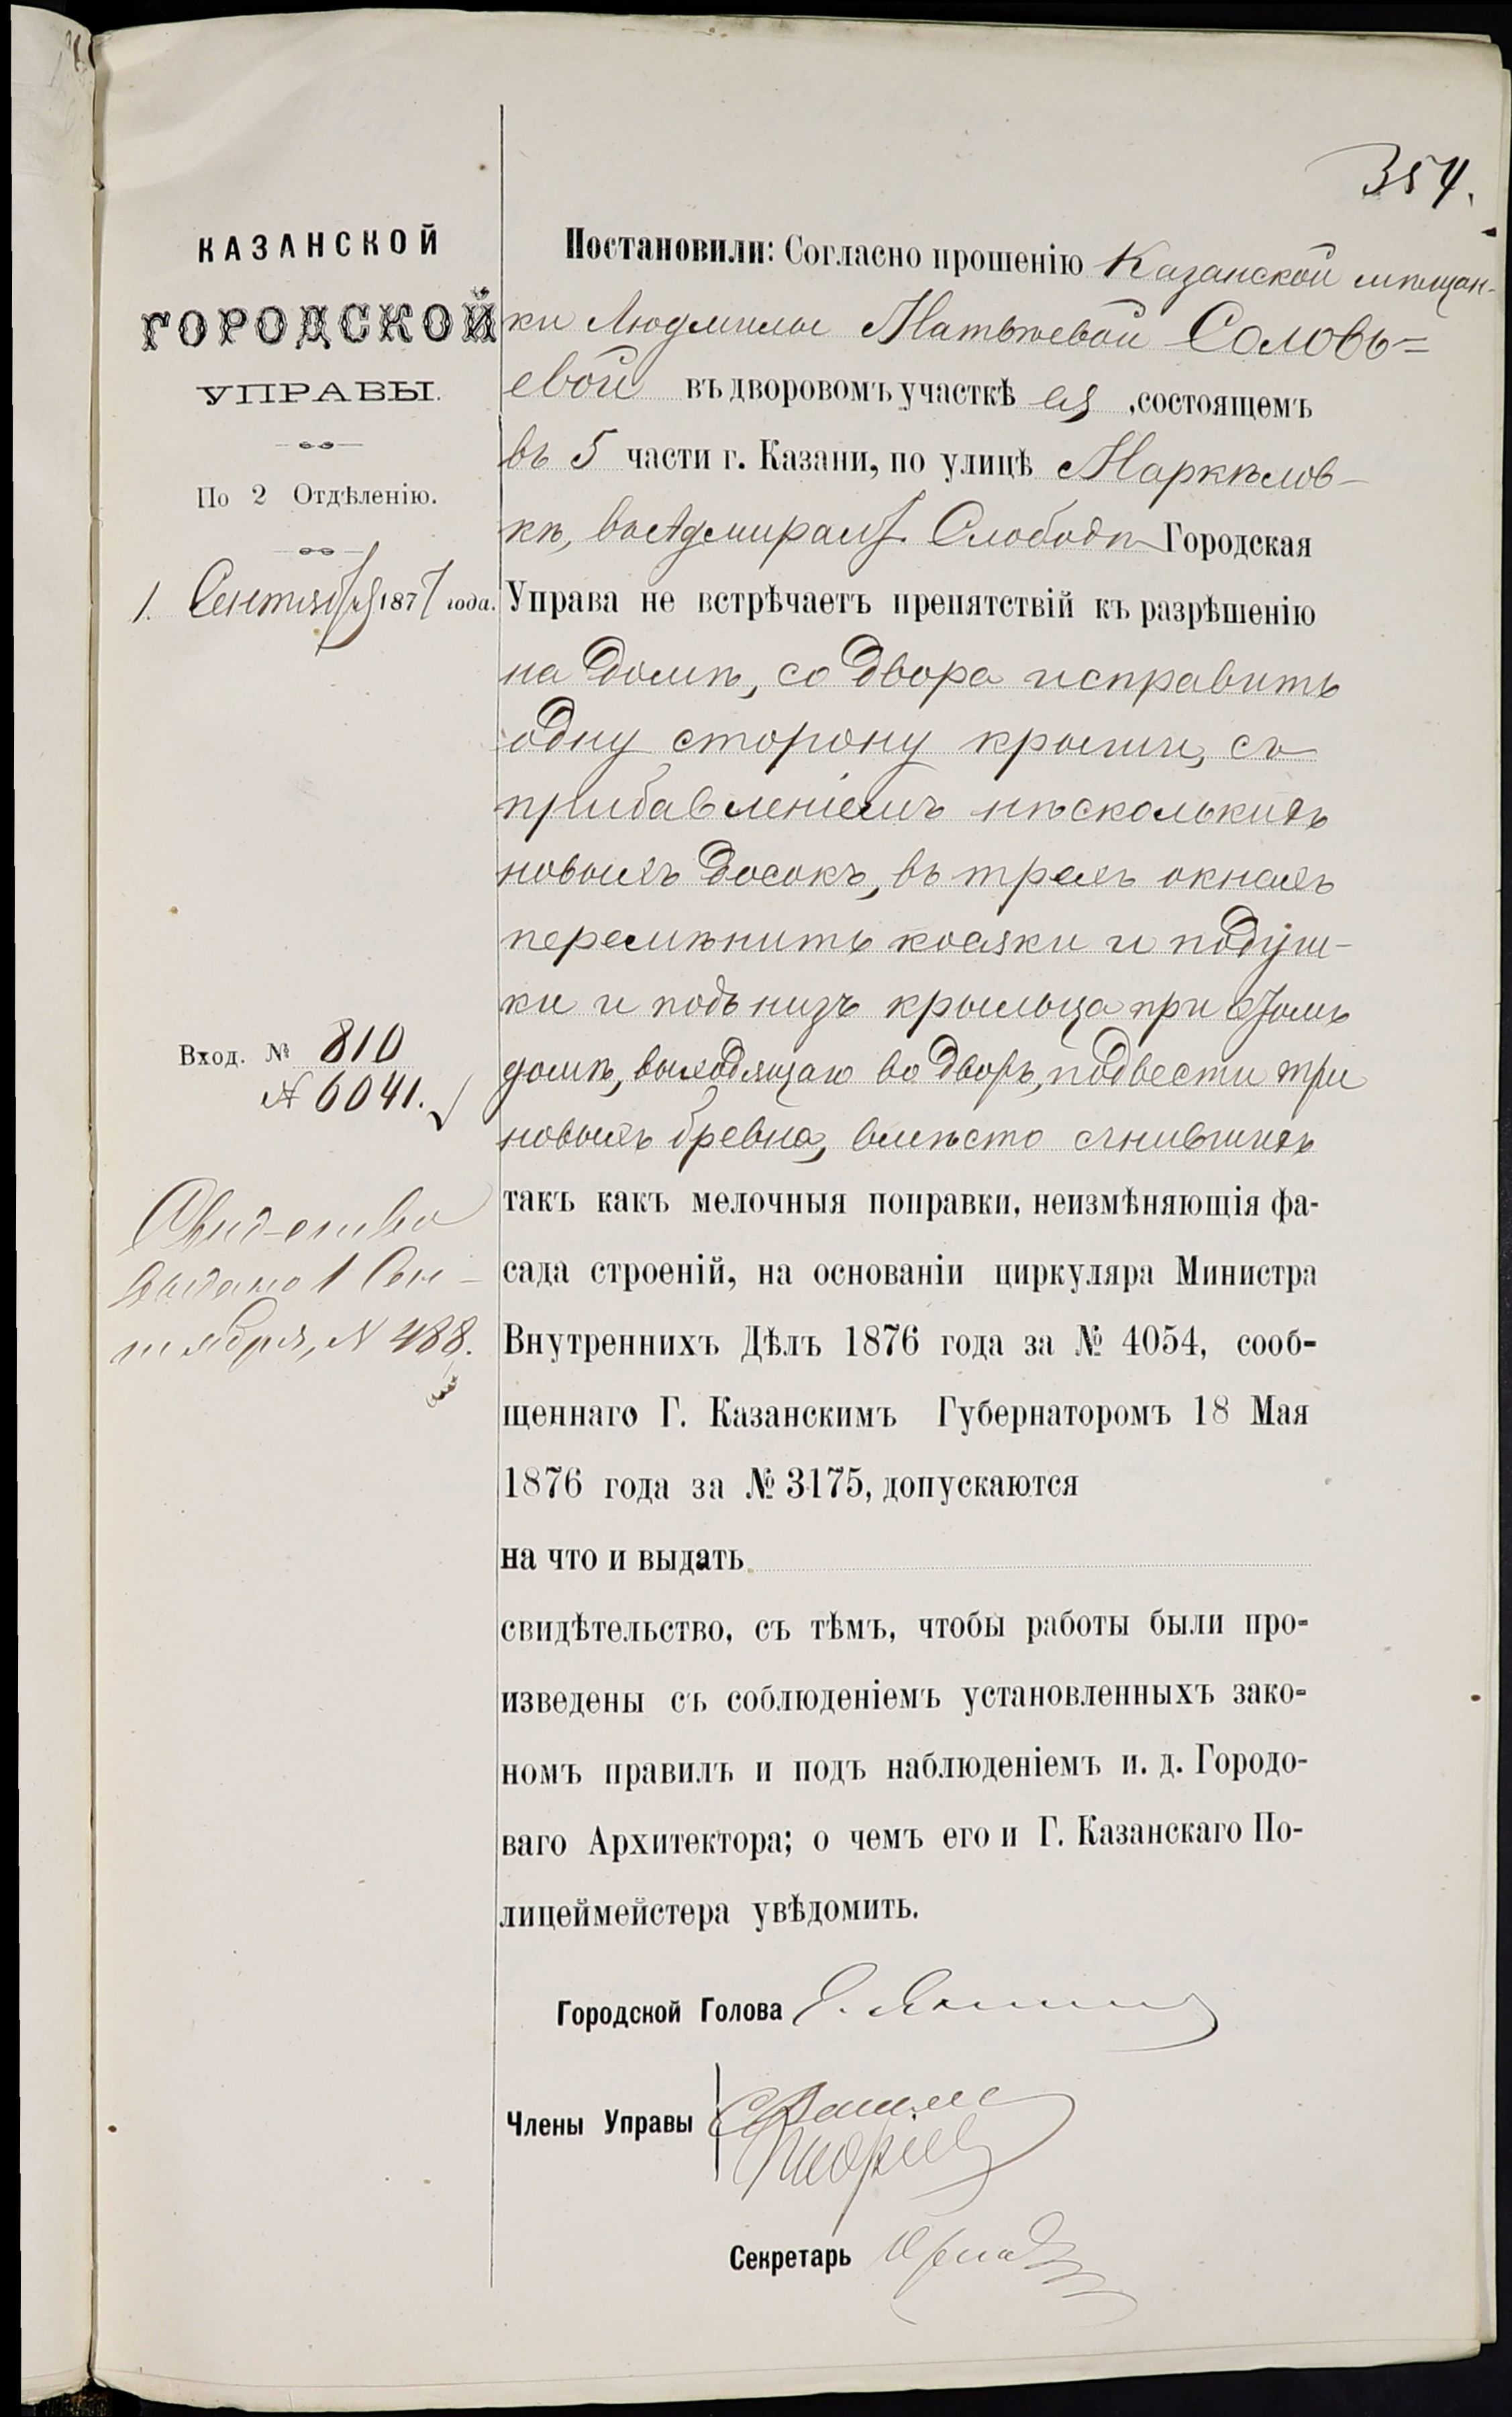 354.
КАЗАНСКОЙ
ГОРОДСКОЙ
УПРАВЫ.
По 2 Отдѣленію.
1. Сентября 1877 года.
Вход. № 810
№ 6041.
Свид-ство
выдано 1 Сен-
тября, N 488.
Постановили: Согласно прошенію Казанской мѣщан-
ки Людмилы Матвѣевой Соловь=
евой въ дворовомъ участкѣ ея, состоящемъ
въ 5 части г. Казани, по улицѣ Маркѣлов-
кѣ, въ Адмиралт. Слободѣ Городская
Управа не встрѣчаетъ препятствій къ разрѣшенію
на домѣ, со двора исправить
одну сторону крыши, съ
прибавленіемъ нѣсколькихъ
новыхъ досокъ, въ трехъ окнахъ
перемѣнить косяки и подуш-
ки и подъ низъ крыльца при этомъ
домѣ, выходящаго во дворъ, подвести три
новыхъ бревна, вмѣсто сгнившихъ
такъ какъ мелочныя поправки, неизмѣняющія фа-
сада строеній, на основаніи циркуляра Министра
Внутреннихъ Дѣлъ 1876 года за № 4054, сооб-
щеннаго Г. Казанскимъ Губернаторомъ 18 Мая
1876 года за № 3175, допускаются
на что и выдать
свидѣтельство, съ тѣмъ, чтобы работы были про-
изведены съ соблюденіемъ установленныхъ зако-
номъ правилъ и подъ наблюденіемъ и. д. Городо-
ваго Архитектора; о чемъ его и Г. Казанскаго По-
лицеймейстера увѣдомить.
Городской Голова
Члены Управы
Секретарь